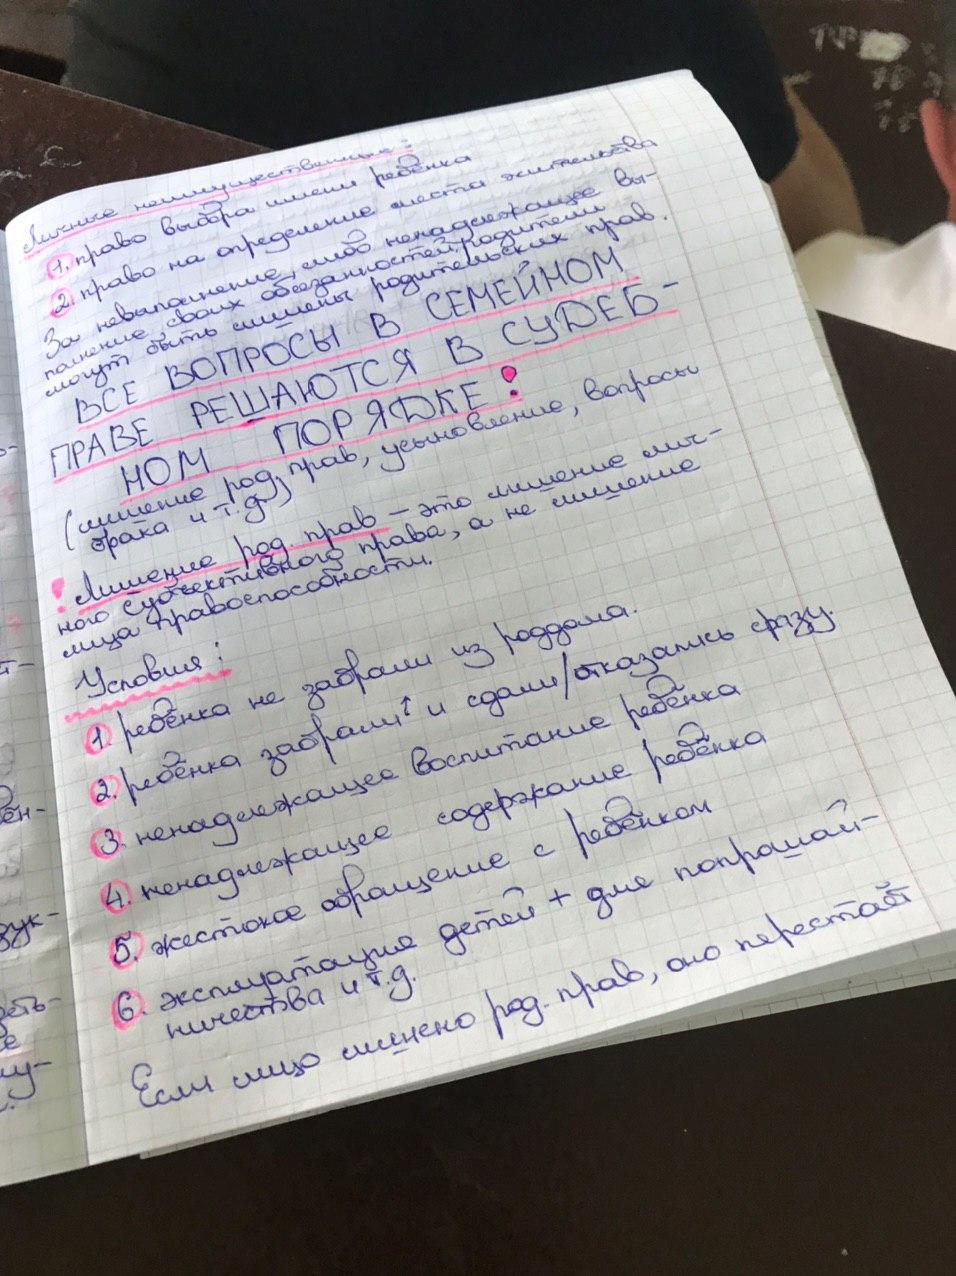 Личные неимущественные:
1. право выбора имени ребёнка
2. право на определение места жительства
За невыполнение, либо ненадлежащее вы-
полнение своих обязанностей родители
могут быть лишены родительских прав.
ВСЕ ВОПРОСЫ В СЕМЕЙНОМ
ПРАВЕ РЕШАЮТСЯ В СУДЕБ-
НОМ ПОРЯДКЕ!
(лишение род. прав, усыновление, вопросы
брака и т.д.)
! Лишение род. прав – это лишение лич-
ного субъективного права, а не лишение
лица правоспособности.
Условия:
1. ребёнка не забрали из роддома.
2. ребёнка забрали↑ и сдали/отказались сразу.
3. ненадлежащее воспитание ребёнка
4. ненадлежащее содержание ребёнка
5. жестокое обращение с ребёнком
6. эксплуатация детей + для попрошай-
ничества и т.д.
Если лицо лишено род. прав, оно перестаёт